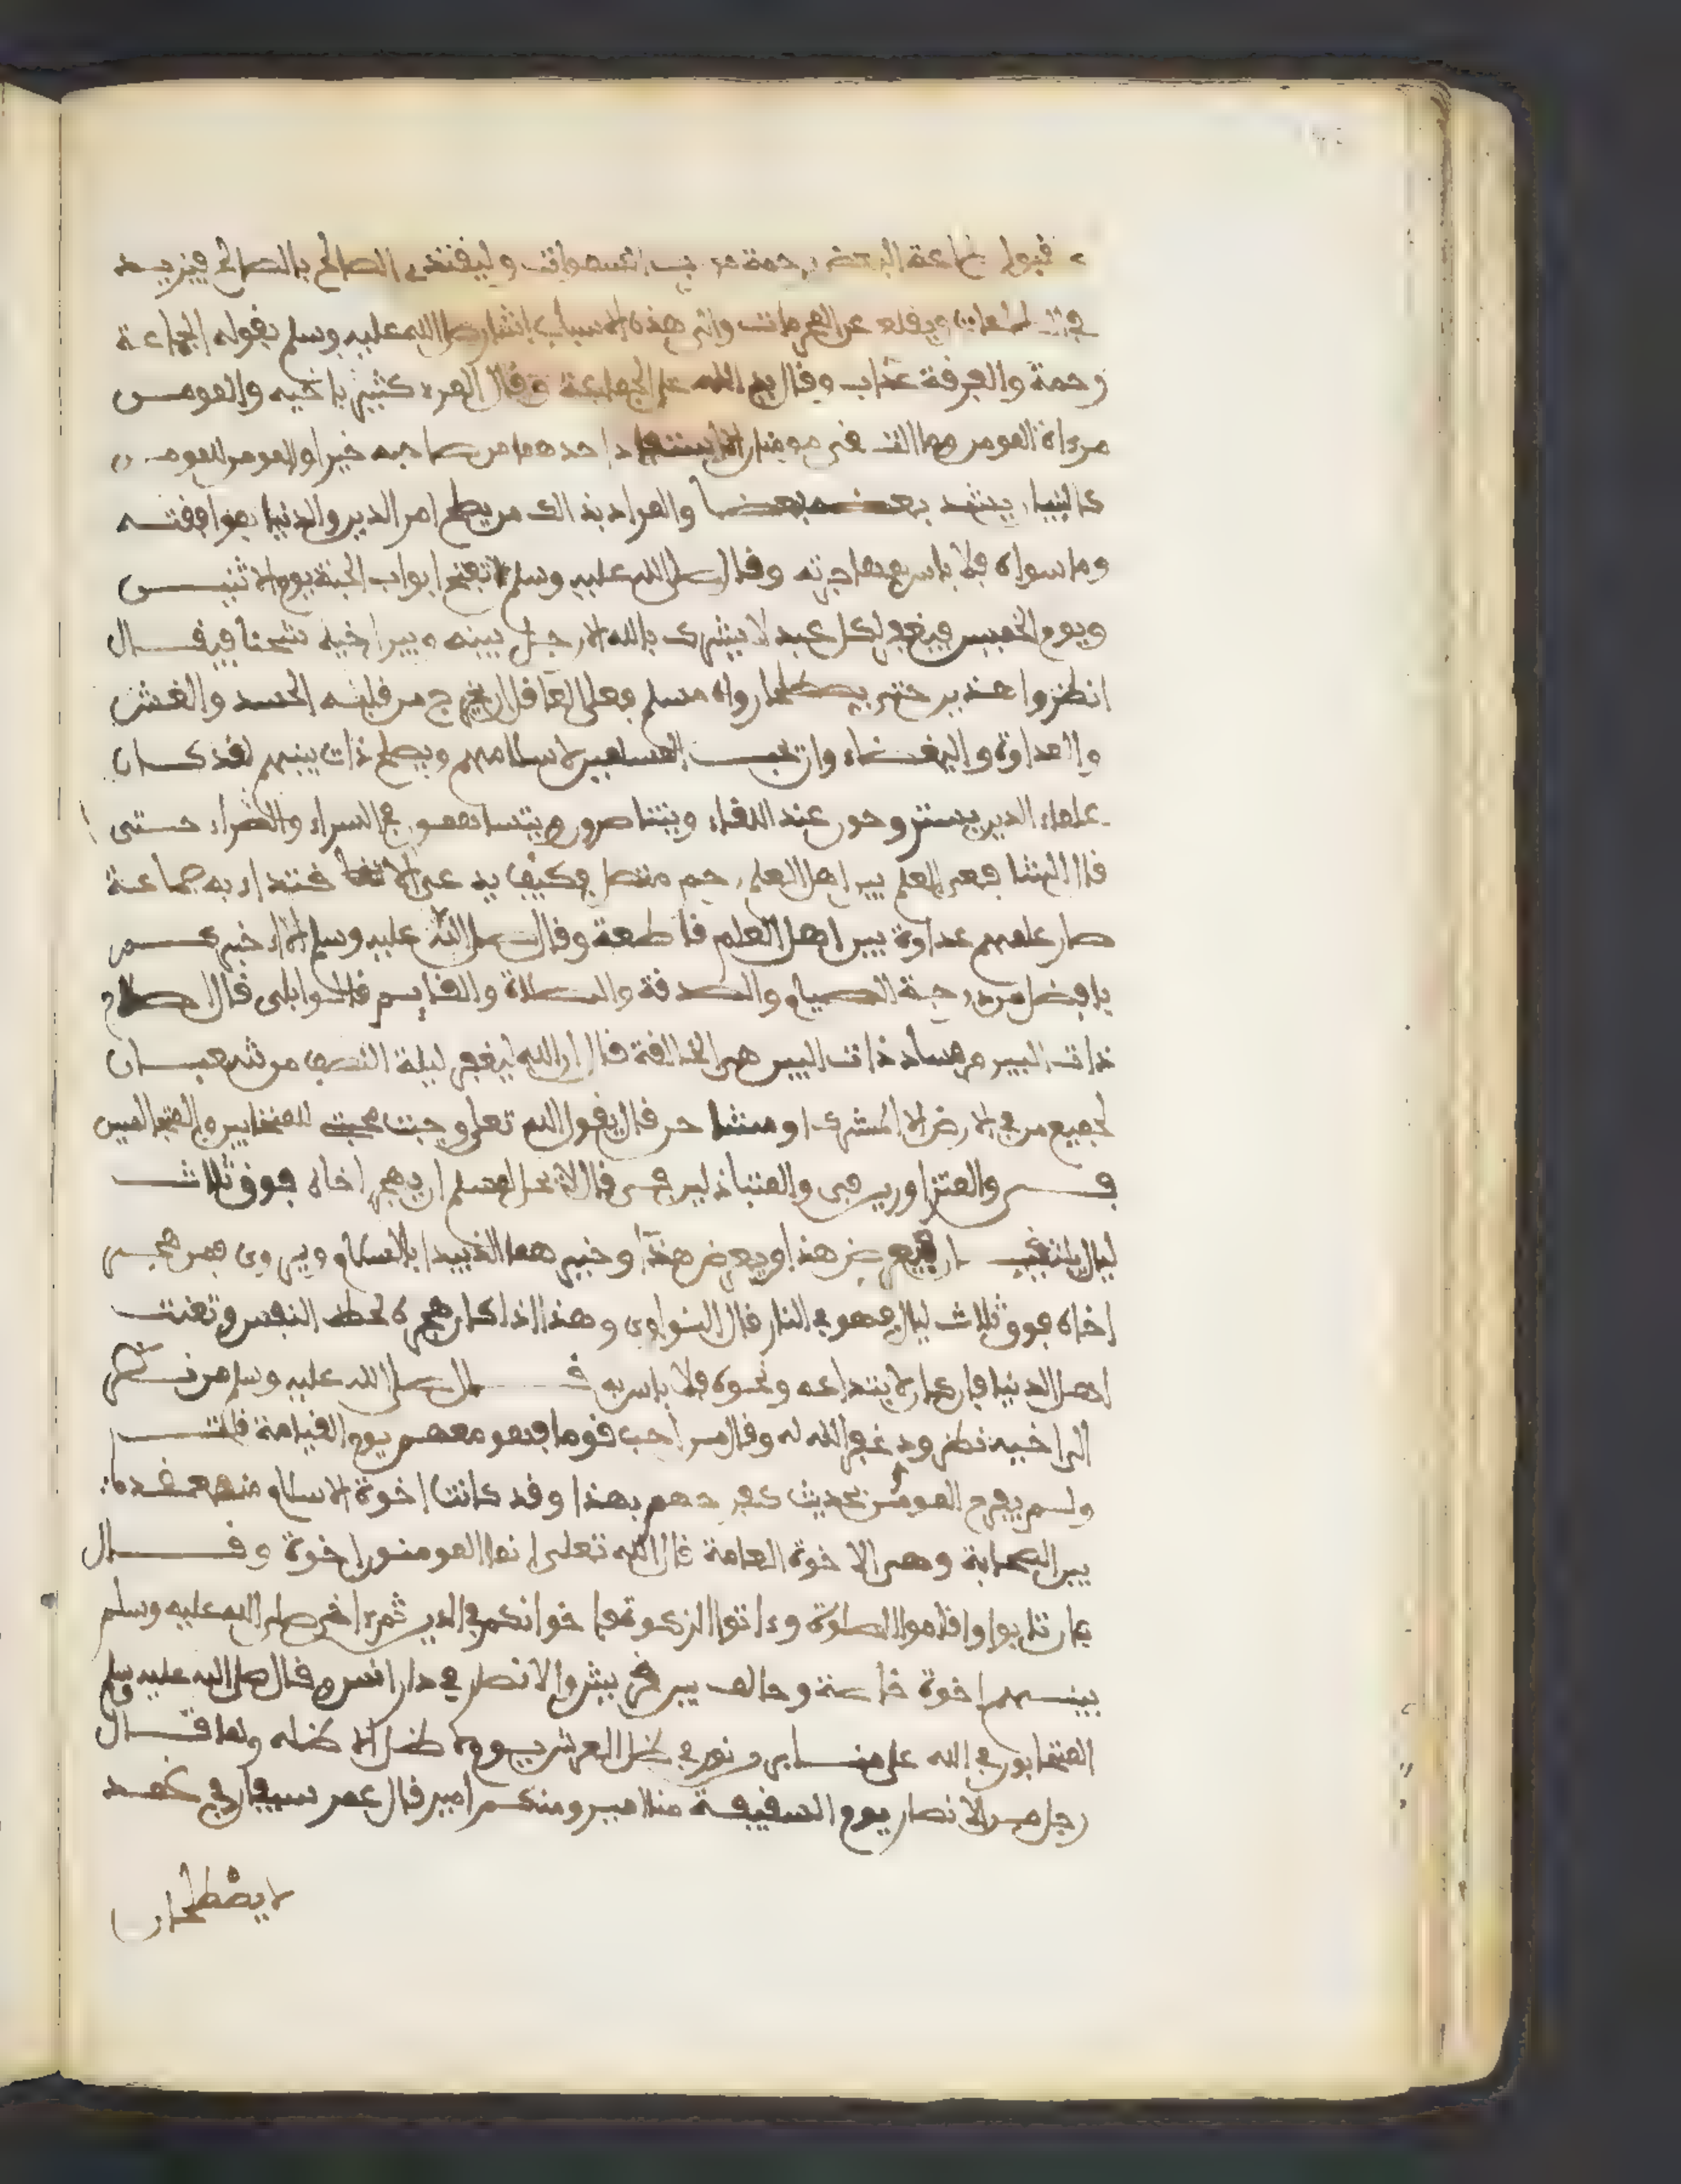 قبول طاعة البعض رحمة من رب السموات وليقتدي الصالح بالصالح فيزيد
في الطاعات ويقلع عن المحرمات والى هذه الاسباب اشار صلى الله عليه وسلم بقوله الجماعة
رحمة والفرقة عذاب وقال يد الله على الجماعة وقال المرء كثير باخيه والمومن
مرءاة المومن وما التقى مومنان الا استفاد احدهما من صاحبه خيرا والمومن للمومن
كالبنيان يشد بعضه بعضا والمراد بذالك من يصلح امر الدين والدنيا بموافقته
وما سواه فلا باس بمهاجرته وقال صلى الله عليه وسلم تفتح ابواب الجنة يوم الاثنين
ويوم الخميس فيغفر لكل عبد لا يشرك بالله الا رجل بينه وبين اخيه شحنا فيقال
انظروا هذين حتى يصطلحا رواه مسلم فعلى العاقل ان يخرج من قلبه الحسد والغش
والعداوة والبغضاء وان يحب المسلمين لاسلامهم ويصلح ذات بينهم لقد كان
علماء الدين يستروحون عند اللقاء ويتناصرون ويتساهمون في السراء والضراء حتى
قال الشافعي العلم بين اهل العلم رحم متصل وكيف يدعى الاقتداء به جماعة
صار علمهم عداوة بين اهل العلم قاطعة وقال صلى الله عليه وسلم الا اخبركم
بافضل من درجة الصيام والصدقة والصلاة والقايم قالوا بلى قال اصلاح
ذات البين وفساد ذات البين هي الحالقة قال ان الله ليغفر ليلة النصف من شعبان
لجميع من في الارض الا لمشرك او مشاحن قال يقول الله تعلى وجبت محبتي للمتحابين والمتجالسين
في والمتزاورين في والمتباذلين في قال لا يحل لمسلم ان يهجر اخاه فوق ثلاث
ليال يلتقيان فيعرض هذا ويعرض هذا وخيرهما الذي يبدا بالسلام ويروى فمن هجر
اخاه فوق ثلاث ليال فهو في النار قال النواوي وهذا اذا كان هجره لحظ النفس وتعنت
اهل الدنيا فان كان لابتداعه ونحوه فلا باس به قال صلى الله عليه وسلم من نظر
الى اخيه نظر ود غفر الله له وقال من احب قوما فهو معهم يوم القيامة قلت
ولم يفرح المومن بحديث كفرحهم بهذا وقد كانت اخوة الاسلام منعقدة
بين الصحابة وهي الاخوة العامة قال الله تعلى انما المومنون اخوة وقال
فان تابوا واقاموا الصلوة وءاتوا الزكوة فاخوانكم في الدين ثم ءاخى صلى الله عليه وسلم
بينهم اخوة خاصة وحالف بين قريش والانصار في دار انس وقال صلى الله عليه وسلم
المتحابون في الله على منابر من نور في ظل العرش يوم لا ظل الا ظله ولما قال
رجل من الانصار يوم السقيفة منا امير ومنكم امير قال عمر سيفان في غمد
لا يصطلحان